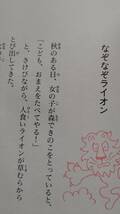 なぞなぞライオン
秋のある日、女の子が森できのこをとっていると、
「こども、おまえをたべてやる！」
と、さけびながら、人食いライオンが草むらから
とび出してきた。